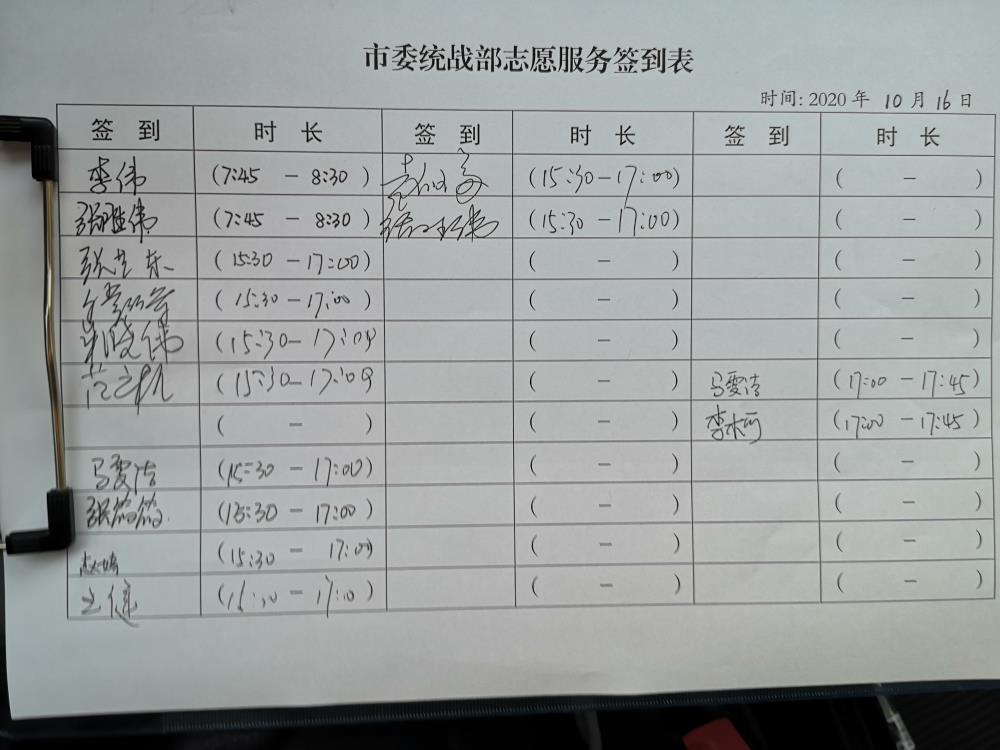 市委统战部志愿服务签到表
时间: 2020 年 10 月 16 日
签 到 时 长 签 到 时 长 签 到 时 长
李伟 (7:45 - 8:30) (15:30-17:00) ( - )
张胜伟 (7:45 - 8:30) (15:30-17:00) ( - )
张芝东 (15:30 - 17:00) ( - ) ( - )
(15:30-17:00) ( - ) ( - )
朱晓伟 (15:30-17:00) ( - ) ( - )
范文帆 (15:30-17:00) ( - ) 马雯洁 (17:00 - 17:45)
( - ) ( - ) 李木可 (17:00 - 17:45)
马雯洁 (15:30 - 17:00) ( - ) ( - )
张茹茹 (15:30 - 17:00) ( - ) ( - )
(15:30 - 17:00) ( - ) ( - )
(15:30 - 17:00) ( - ) ( - )